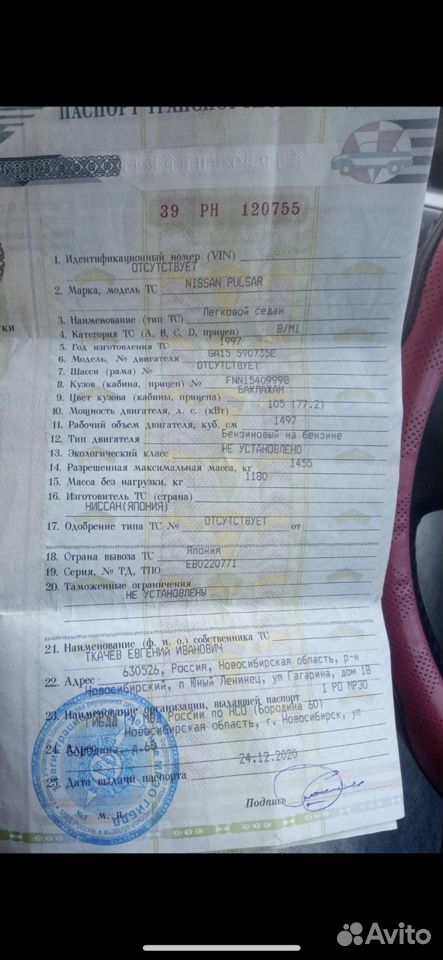 ПАСПОРТ
39 РН 120755
1. Идентификационный номер (VIN)
ОТСУТСТВУЕТ
2. Марка, модель ТС NISSAN PULSAR
3. Наименование (тип ТС) Легковой седан
4. Категория ТС (А, В, С, D, прицеп) B/M1
5. Год изготовления ТС 1997
6. Модель, № двигателя GA15 590735E
7. Шасси (рама) № ОТСУТСТВУЕТ
8. Кузов (кабина, прицеп) № FNN15409998
9. Цвет кузова (кабины, прицепа) БАКЛАЖАН
10. Мощность двигателя, л. с. (кВт) 105 (77.2)
11. Рабочий объем двигателя, куб. см 1497
12. Тип двигателя Бензиновый на бензине
13. Экологический класс НЕ УСТАНОВЛЕНО
14. Разрешенная максимальная масса, кг 1455
15. Масса без нагрузки, кг 1180
16. Изготовитель ТС (страна)
НИССАН(ЯПОНИЯ)
17. Одобрение типа ТС № ОТСУТСТВУЕТ от
18. Страна вывоза ТС Япония
19. Серия, № ТД, ТПО ЕВ0220771
20. Таможенные ограничения
НЕ УСТАНОВЛЕНЫ
21. Наименование (ф. и. о.) собственника ТС
ТКАЧЕВ ЕВГЕНИЙ ИВАНОВИЧ
22. Адрес 630526, Россия, Новосибирская область, р-н
Новосибирский, п Юный Ленинец, ул Гагарина, дом 18
23. Наименование организации, выдавшей паспорт 1 РО МРЭО
ГИБДД МВД России по НСО (Бородина 60)
24. Адрес Новосибирская область, г. Новосибирск, ул
Бородина, д.60
25. Дата выдачи паспорта 24.12.2020
М. П.
Подпись
Avito